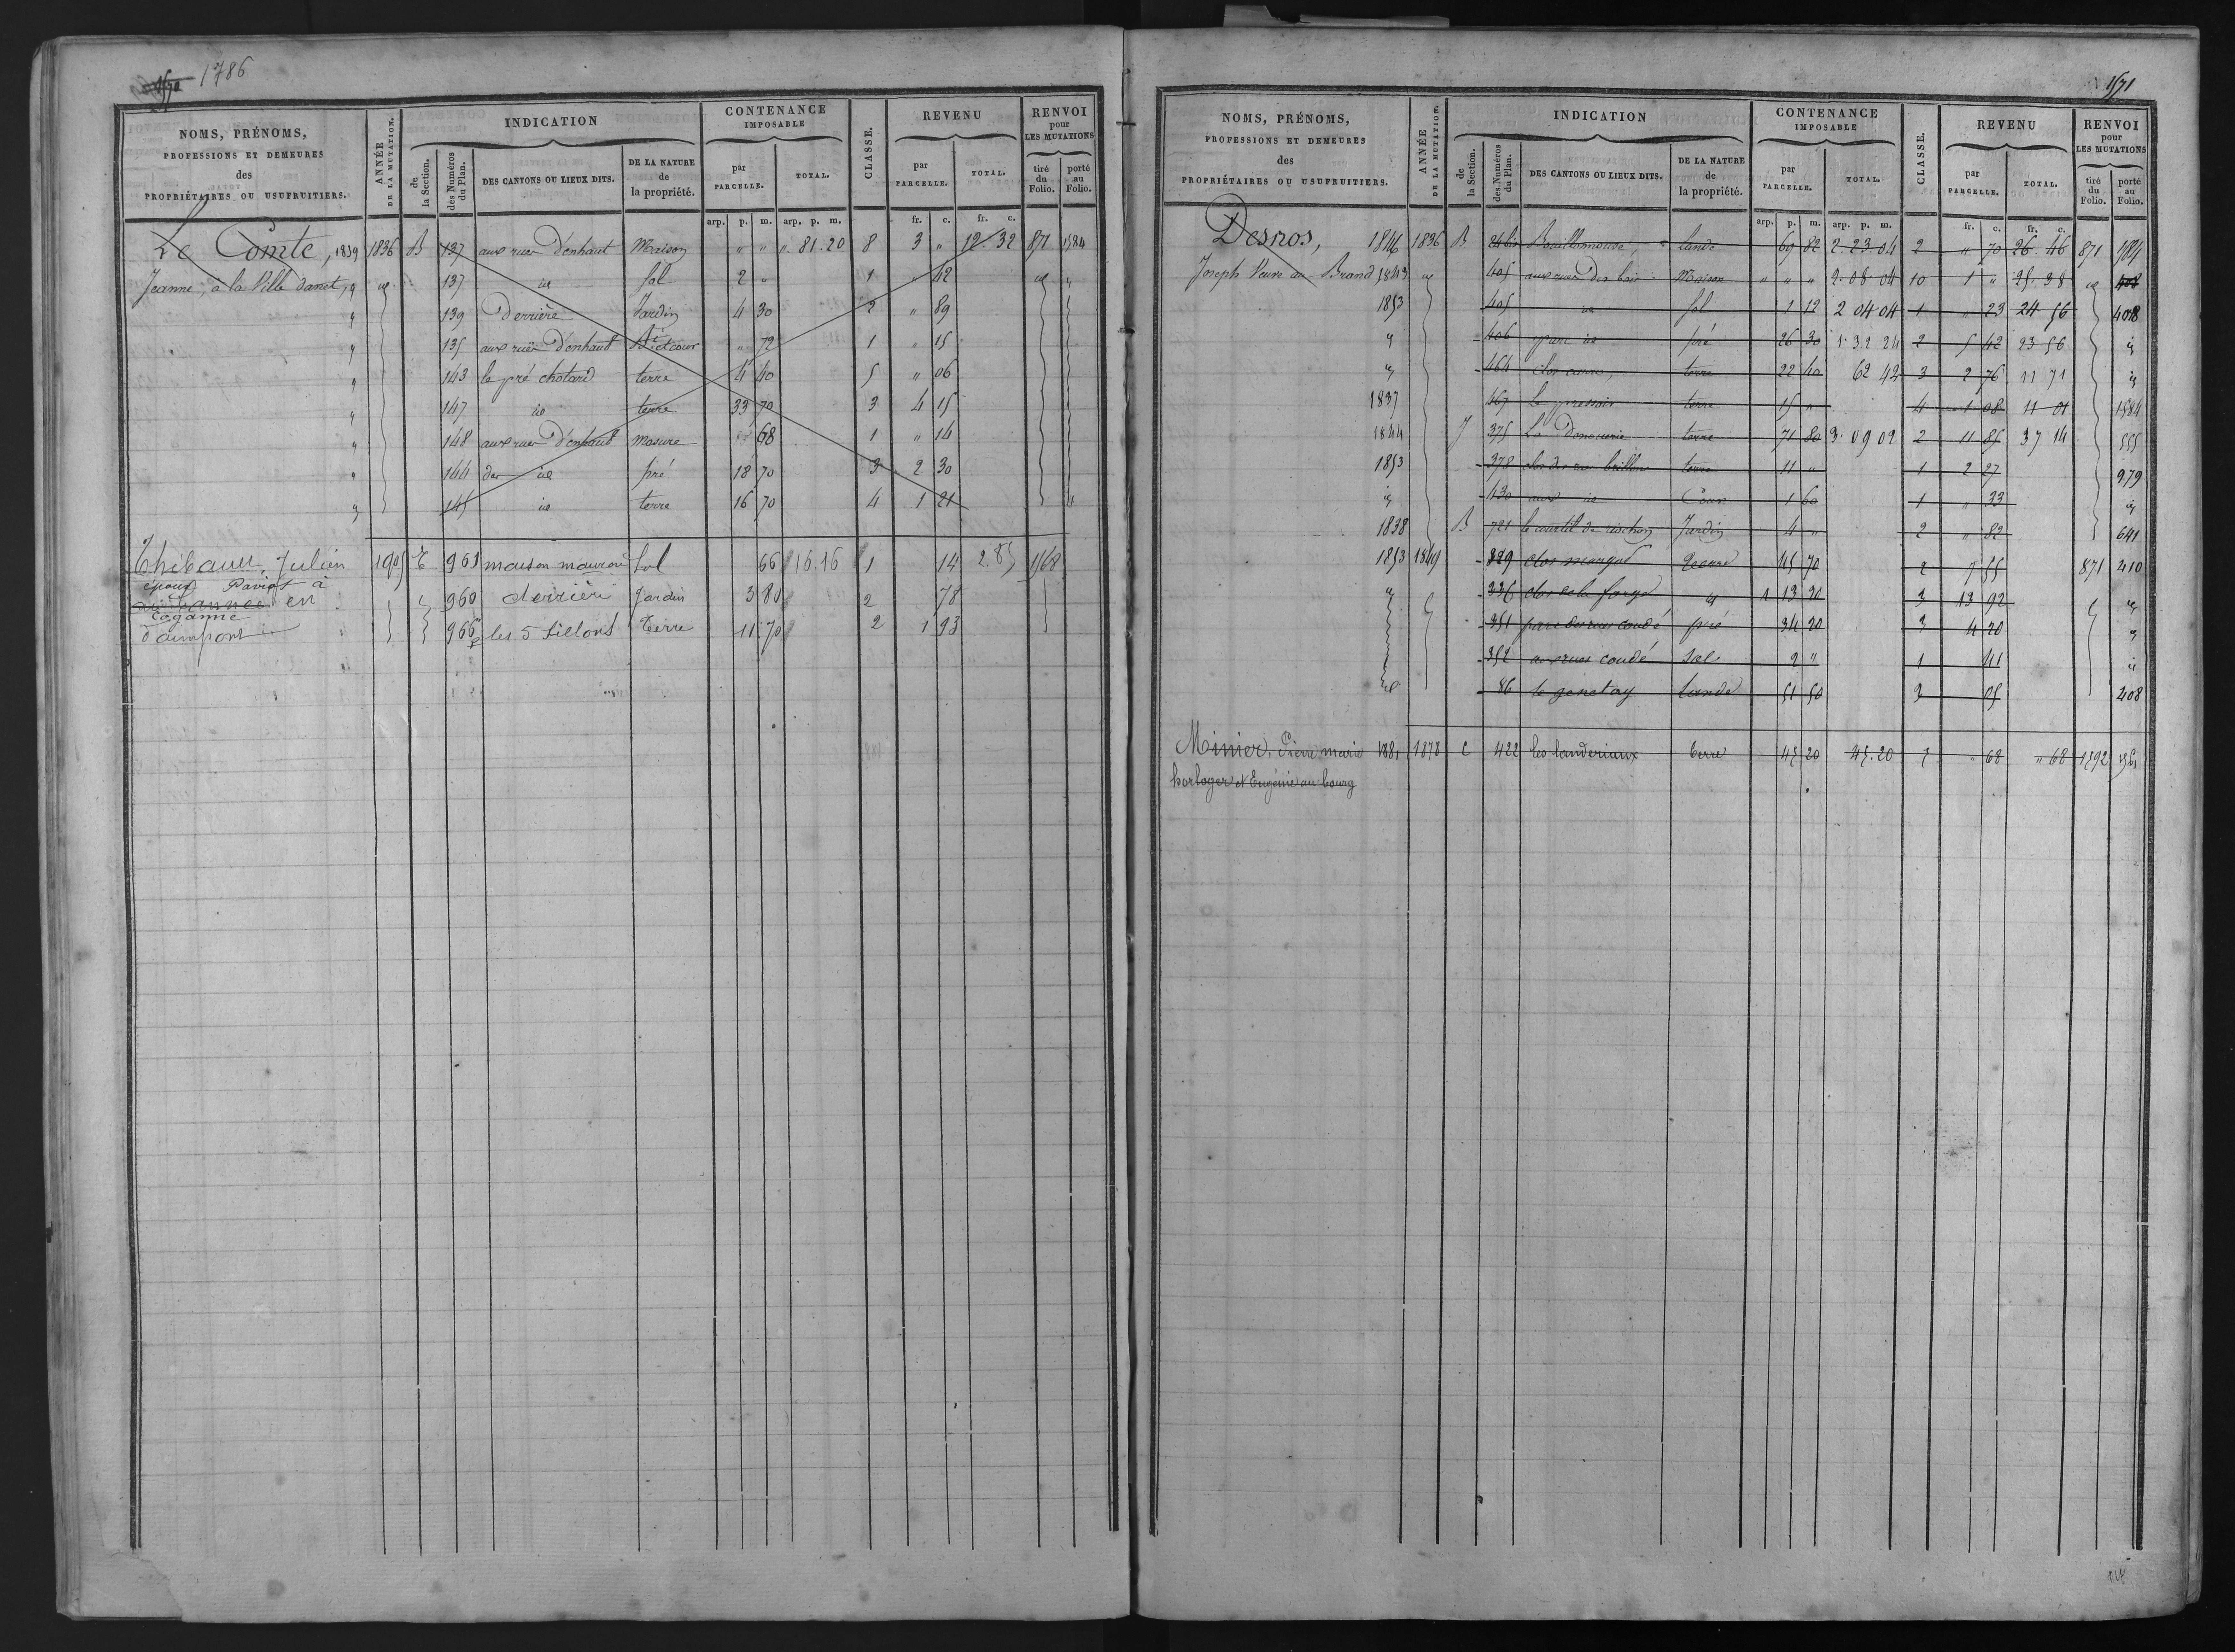 1570 1786
NOMS, PRÉNOMS, PROFESSIONS ET DEMEURES des PROPRIÉTAIRES OU USUFRUITIERS.
ANNÉE DE LA MUTATION.
INDICATION
de la Section.
des Numéros du Plan.
DES CANTONS OU LIEUX DITS.
DE LA NATURE de la propriété.
CONTENANCE IMPOSABLE
par PARCELLE.
TOTAL.
CLASSE.
REVENU
par PARCELLE.
TOTAL.
RENVOI pour LES MUTATIONS
tiré du Folio.
porté au Folio.
arp. p. m. arp. p. m. fr. c. fr. c.
Le Comte, 1839 1836 B 137 aux rues D'enhaut Maison " " ". 81. 20 8 3 " 12. 32 871 1584
Jeanne, à la Ville danet, " id 137 id Sol 2 " 1 " 42 id "
" 139 Derrière Jardin 4 30 2 " 89
" 135 aux rues D'enhaut Bt et cour " 72 1 " 15
" 143 le pré chotard terre 4 40 5 " 06
" 147 id terre 33 70 3 4 15
" 148 aux rues D'enhaut masure 68 1 " 14
" 144 des id pré 18 70 3 2 30
" 145 id terre 16 70 4 1 21 "
Thibaux, Julien 1905 E 961 maison mauron Sol 66 16.16 1 14 2.85 1568
époux Paviot à 960 derrière Jardin 3 80 2 78
en
Coganne
daimpont 966 p les 5 sillons Terre 11 70 2 1 93
1571
NOMS, PRÉNOMS, PROFESSIONS ET DEMEURES des PROPRIÉTAIRES OU USUFRUITIERS.
ANNÉE DE LA MUTATION.
INDICATION
de la Section.
des Numéros du Plan.
DES CANTONS OU LIEUX DITS.
DE LA NATURE de la propriété.
CONTENANCE IMPOSABLE
par PARCELLE.
TOTAL.
CLASSE.
REVENU
par PARCELLE.
TOTAL.
RENVOI pour LES MUTATIONS
tiré du Folio.
porté au Folio.
arp. p. m. arp. p. m. fr. c. fr. c.
Desros, 1846 1836 B Bouillonnouse, lande 69 82 2. 23 04 2 " 70 26. 46 871 1584
Joseph Veuve au Brand 1843 id 405 aux rues des bois Maison " " " 2. 08 04 10 1 " 25. 38 id 408
1853 405 id Sol 1 12 2 04 04 1 " 23 24 56 408
id 406 parc id pré 26 30 1. 32 24 2 5 42 23 56 id
id 464 clos terre 22 40 62 42 3 2 76 11 71 id
1837 467 le pressoir terre 15 " 4 1 08 11 01 1584
1844 J 375 La terre 71 80 3. 09 02 2 11 85 37 14 555
1853 378 clos des rues terre 11 " 1 2 27 979
id 430 aux id Cour 1 60 1 " 33 id
1838 B 721 le courtil de Jardin 4 " 2 " 82 641
1853 1849 329 clos 45 70 2 7 55 871 410
id 336 clos de la forge id 1 13 20 3 13 92 id
351 parc des rues coudé pré 34 20 3 4 20
352 aux rues coudé Sol 2 " 1 41 id
id 86 le genetay Lande 51 50 2 05 408
Minier, Pierre marie 1881 1878 C 422 les landeriaux terre 45 20 45. 20 5 " 68 " 68 1592
horloger et Eugénie au bourg